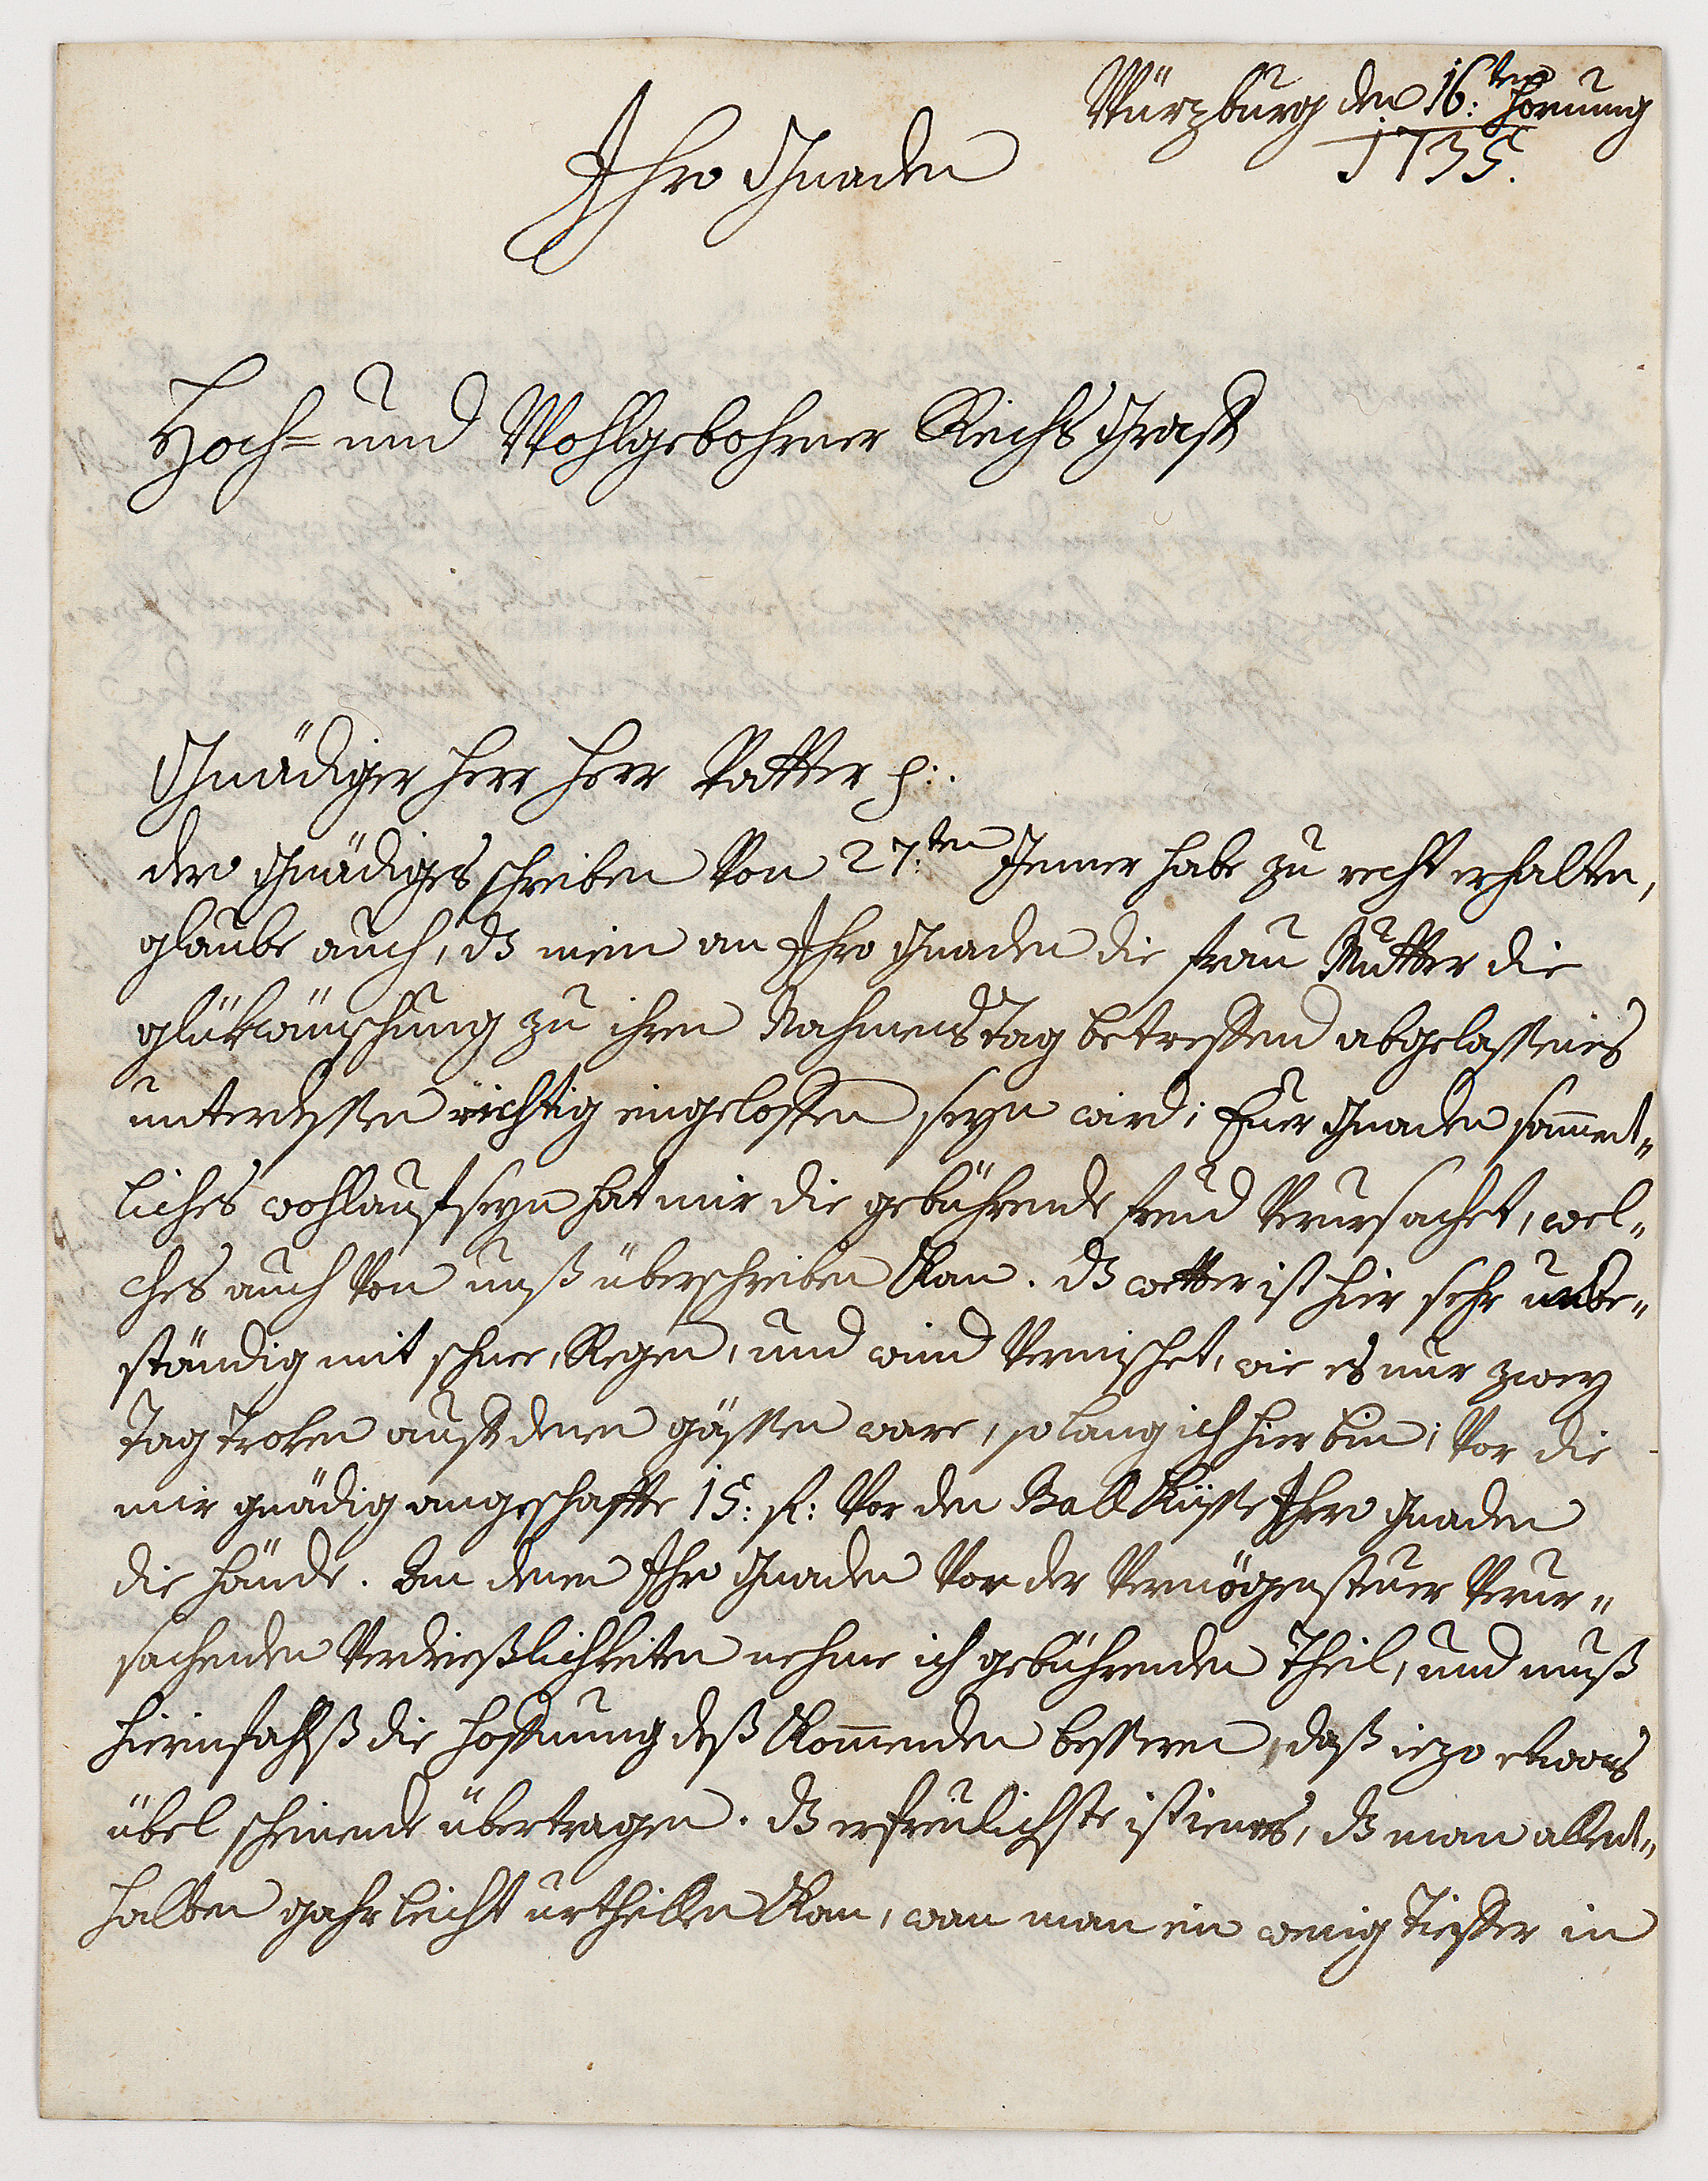 Würzburg den 16:ten Hornung
1735.
Ihro Gnaden
Hoch= und Wohlgebohrner Reichs Graff
Gnädiger Herr Herr Vatter p:.
dero Gnädiges schreiben Von 27:ten Jenner habe zu recht erhalten,
glaube auch, dz mein an Ihro Gnaden die frau Mutter die
glükwünschung zu ihren Nahmens Tag betreffend abgelassenes
unterdessen richtig eingeloffen seyn wird; Euer Gnaden sammet„
liches wohlauffseyn hat mir die gebührende freud Verursachet, wel„
ches auch Von unß überschreiben Kan. dz wetter ist hier sehr unbe„
ständig mit schnee, Regen, und wind Vermischet, wie es nur zwey
Tag Troken auff denen gässen ware, so lang ich hier bin; Vor die
mir gnädig angeschaffte 15: fl: Vor den Ball Küsse Ihro Gnaden
die Hände. An denen Ihro Gnaden Von der Vermögensteuer Verur„
sachenden Verdrießlichkeiten nehme ich gebührenden Theil, und muß
hierinfahlß die Hoffnung deß Kommenden besseren, daß iezo etwas
übel scheinende übertragen. dz erfreulichste ist ienes, dz man allent„
halben gahr leicht urtheillen Kan, wan man ein wenig Tieffer in